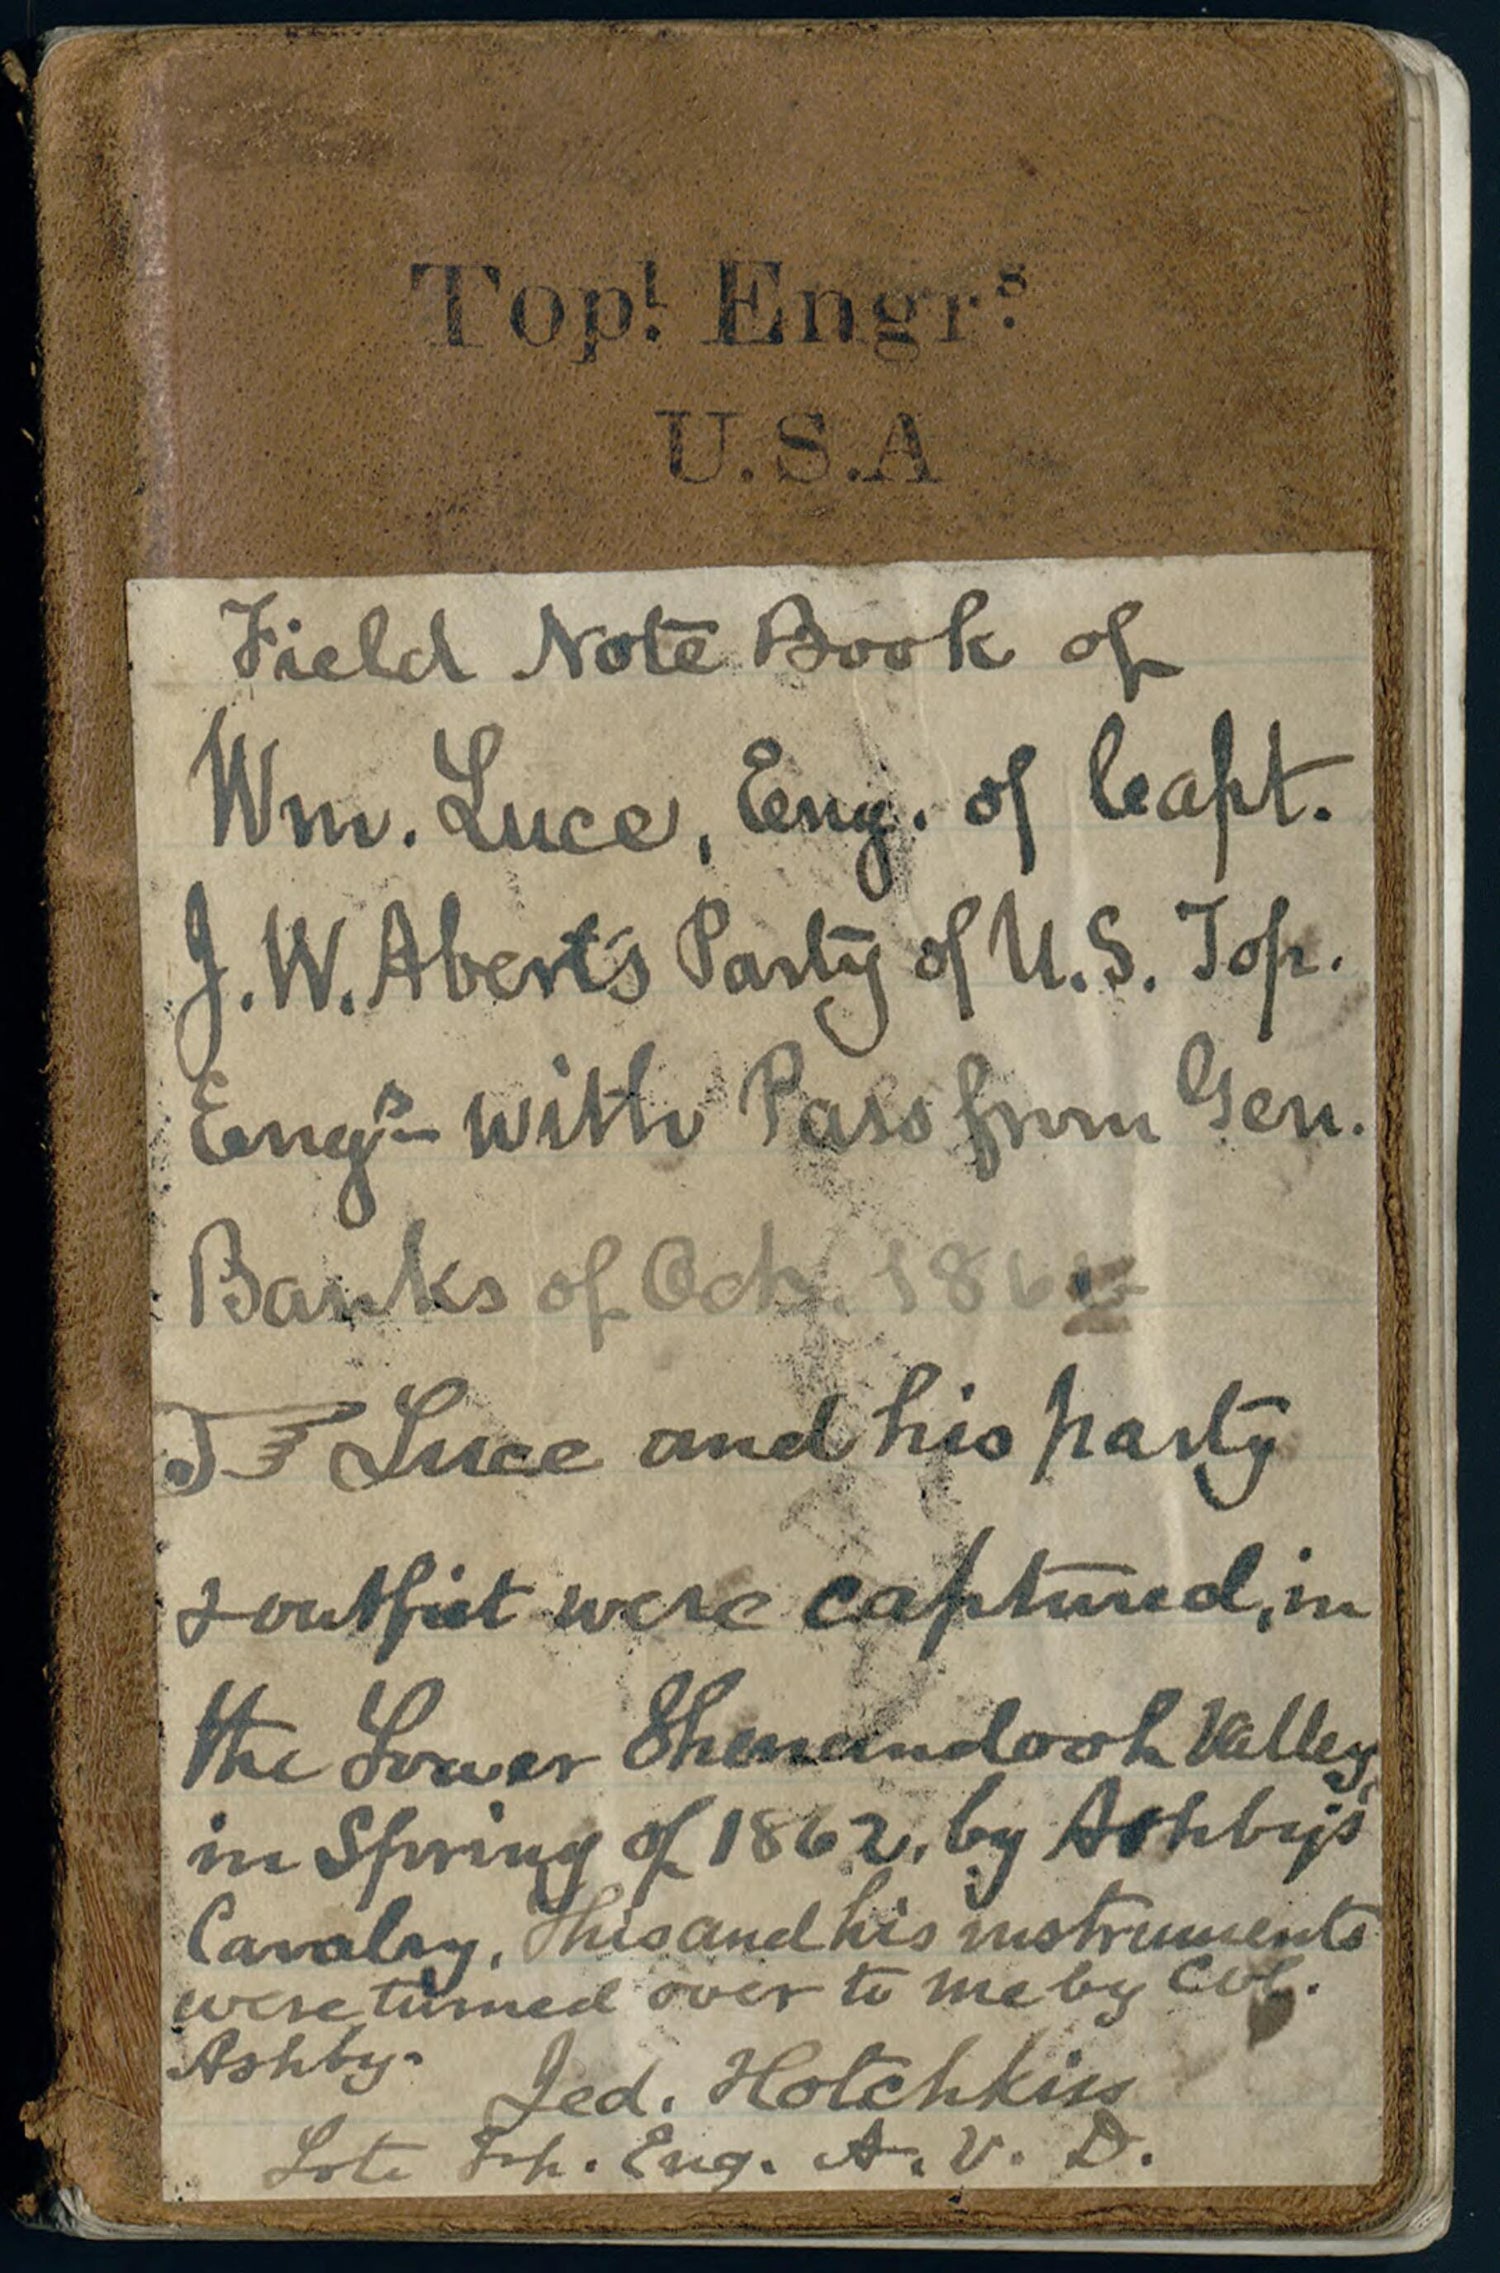 Top.l Engr.s
U.S.A
Field Note Book of
Wm. Luce, Eng. of Capt.
J. W. Abert's Party of U. S. Top.
Engrs - with Pass from Gen.
Banks of Oct. 186
☞ Luce and his party
& outfit were captured, in
the Lower Shenandoah Valley,
in Spring of 1862, by Ashby's
Cavalry. This and his instruments
were turned over to me by Col.
Ashby.
Jed. Hotchkiss
Late Top. Eng. A. V. D.